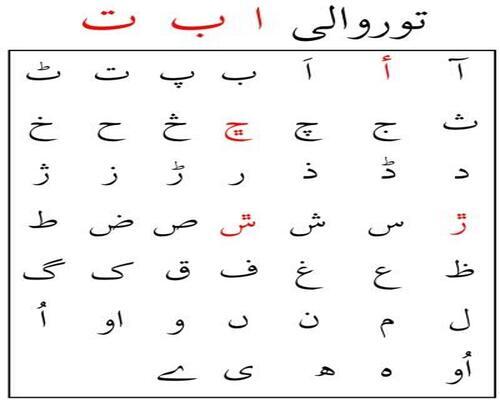 توروالی ا ب ت
آ أ اَ ب پ ت ٹ
ث ج چ ڇ څ ح خ
د ڈ ذ ر ڑ ز ژ
ڙ س ش ݜ ص ض ط
ظ ع غ ف ق ک گ
ل م ن ں و او اُ
اُو ہ ھ ی ے